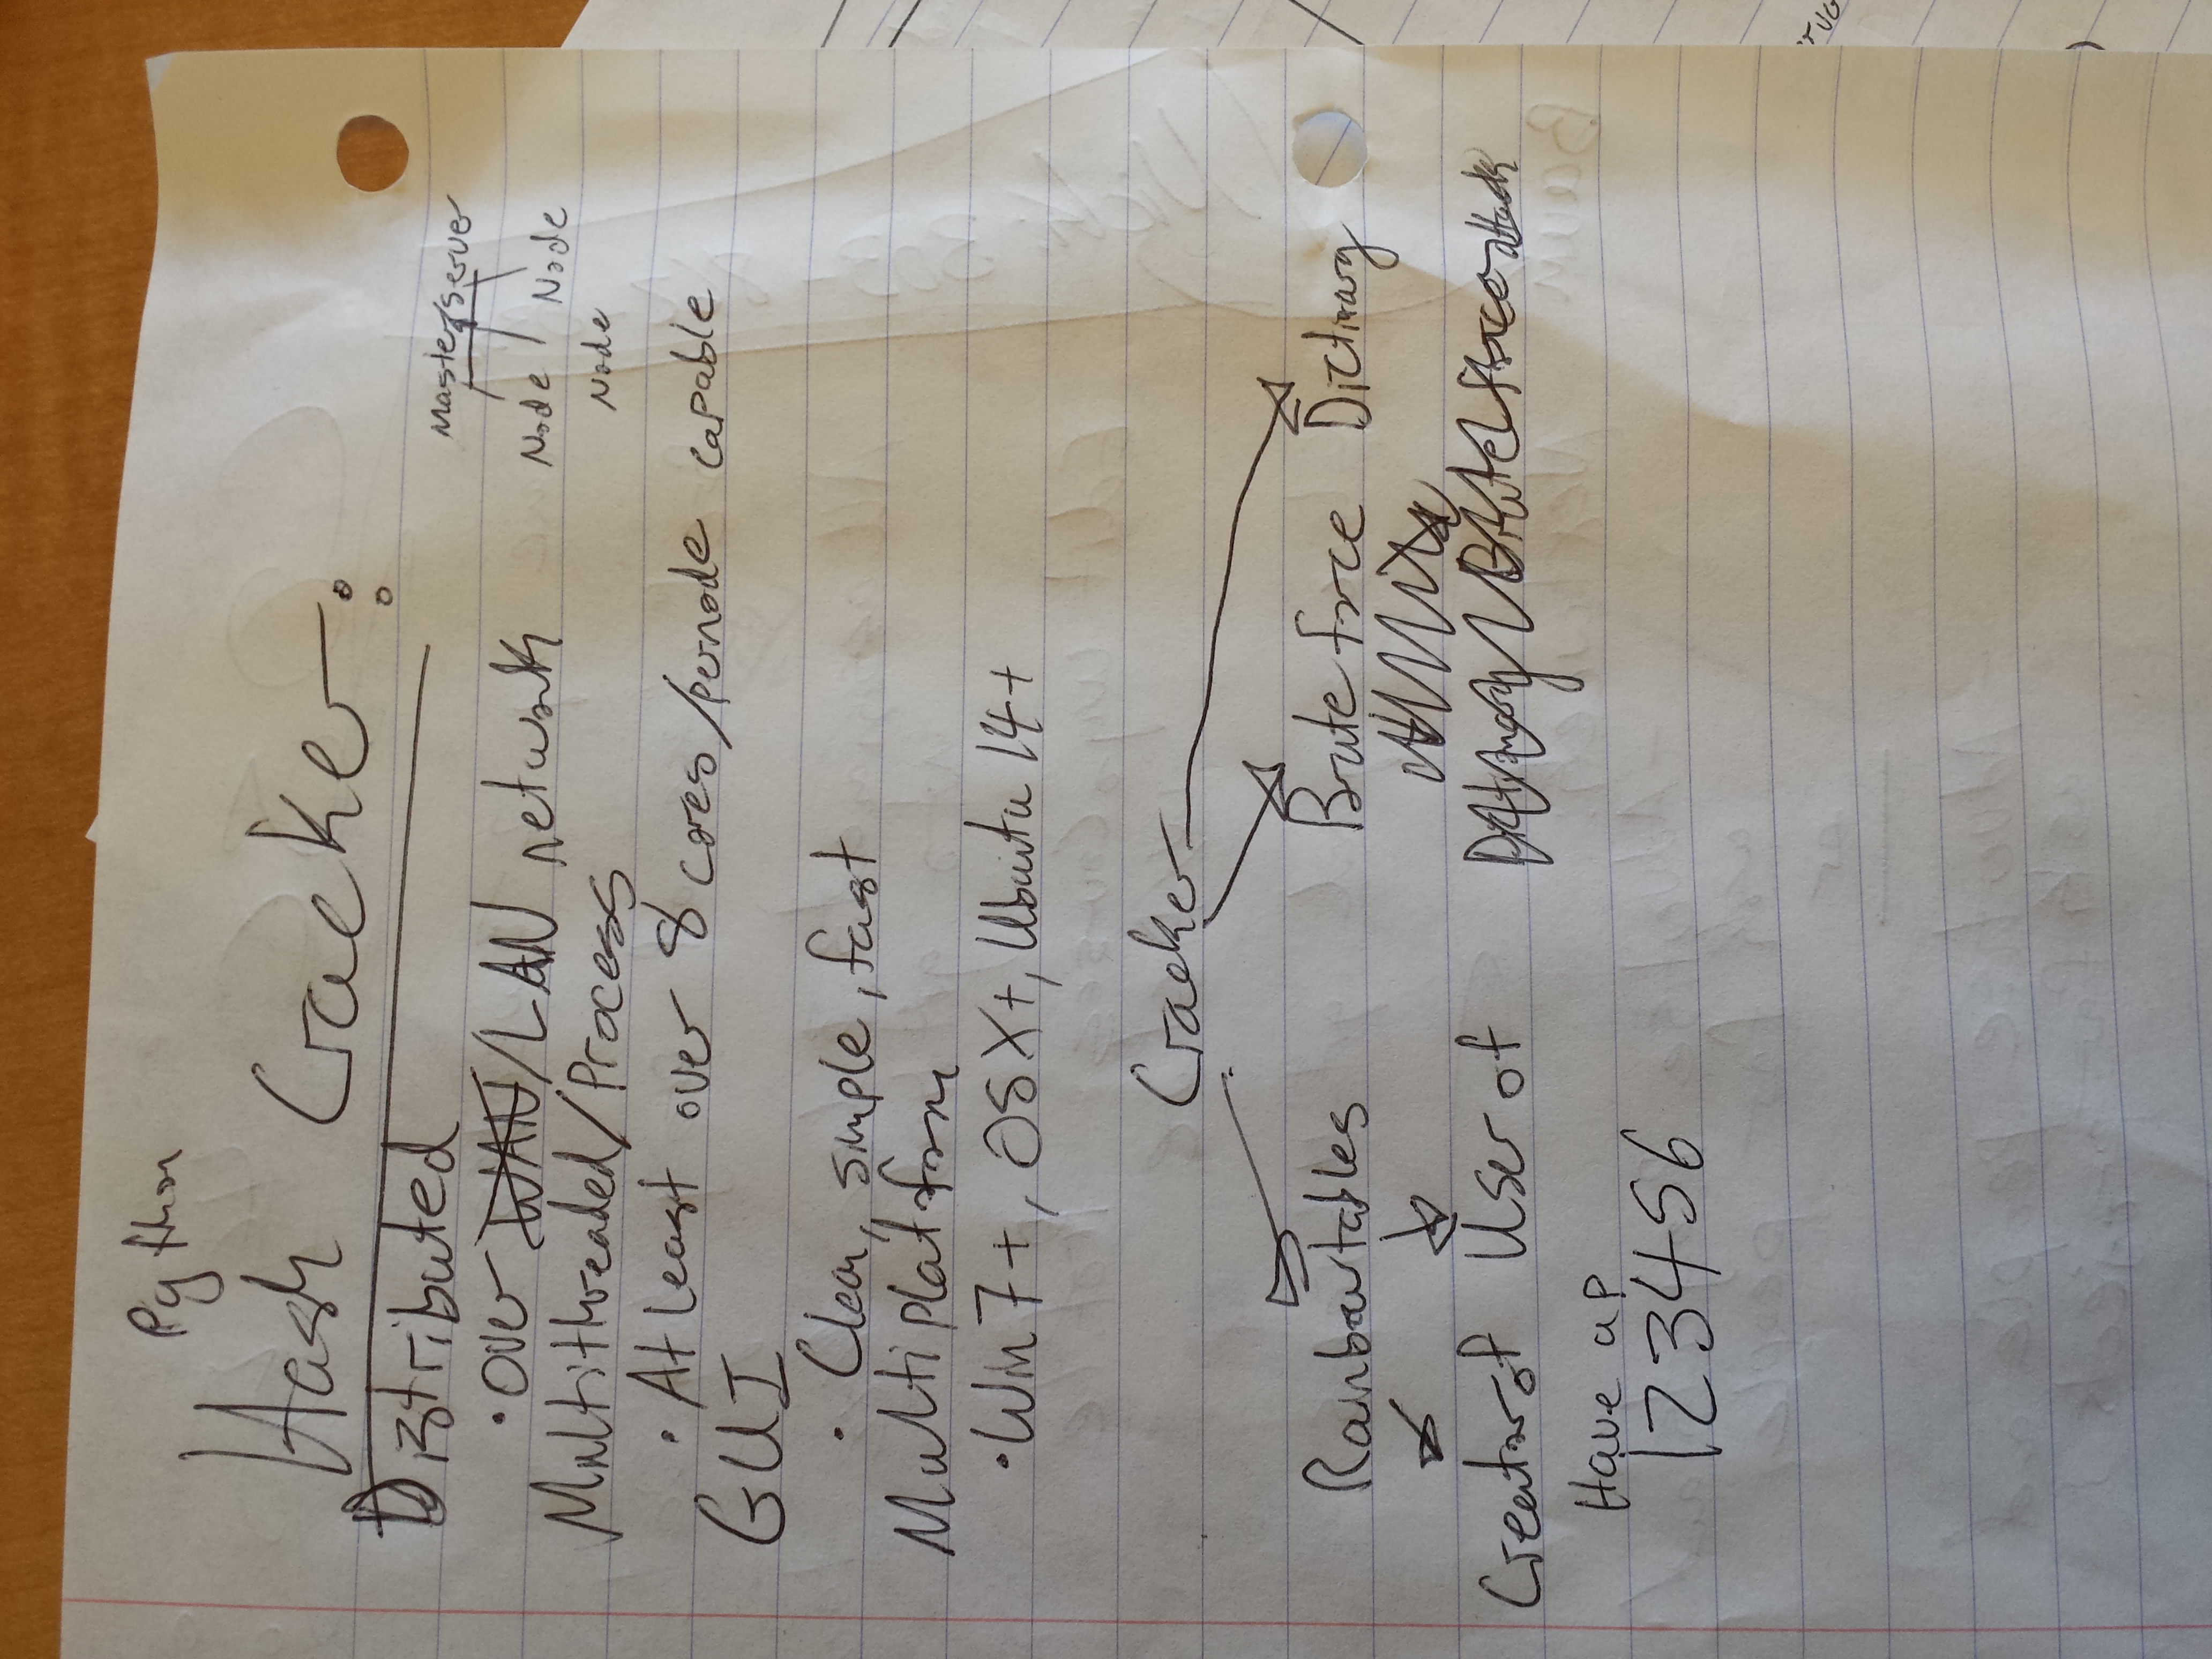 Python
Hash Cracker:
Distributed
Master/Server
• Over WAN/LAN network
Node Node
Node
Multithreaded/Process
• At least over 8 cores/per node capable
GUI
• Clean, simple, fast
Multi platform
• Win 7+, OSX+, Ubuntu 14+
Cracker
Rainbow tables Brute force Dictionary
Creator of User of Dictionary Brute force attack
Have up
123456